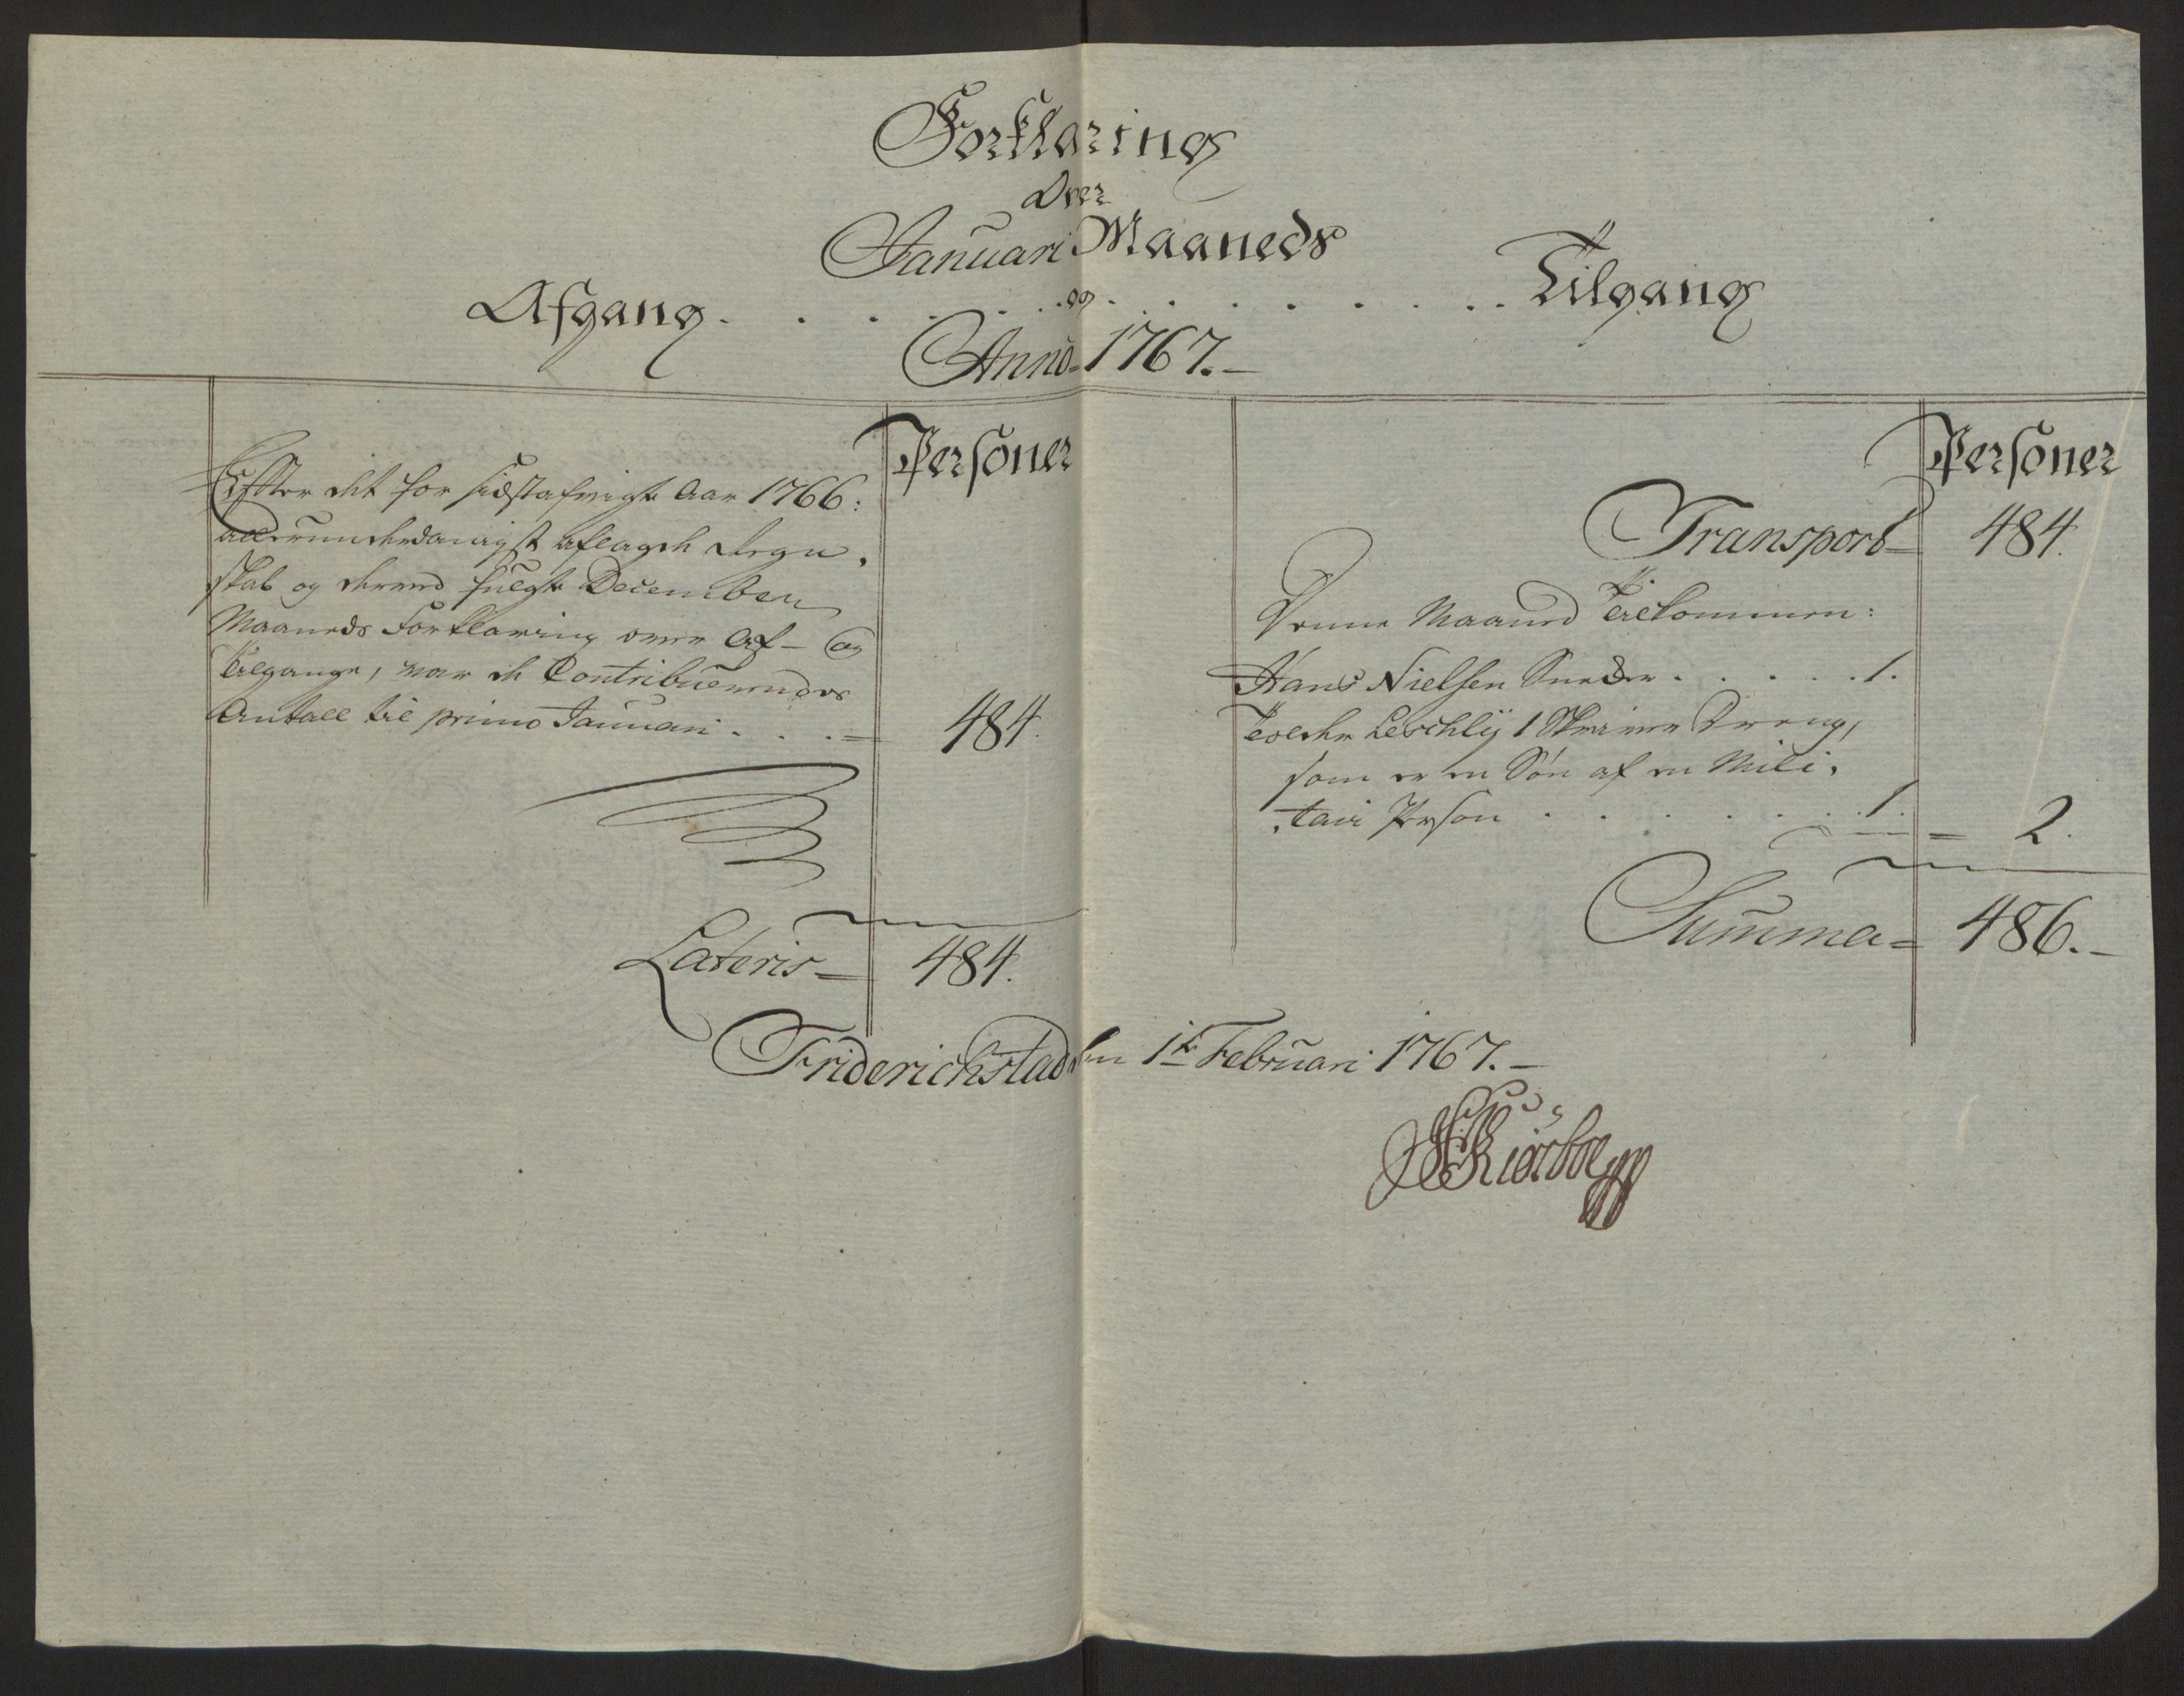 Forklaring
Over
Januari Maaneds
Afgang . . . . . . og . . . . . . . Tilgang
Anno 1767.-
Personer
Efter det for sidstafvigte Aar 1766:
allerunderdanigst aflagde Regn-
skab og dermed fulgte December
Maaneds Forklaring over Af- og
Tilgange, var de Contribuerendes
Antall til primo Januari . . . = 484.
Lateris = 484.
Personer
Transport = 484.
Denne Maaned Tilkommen:
Hans Nielsen Sneder . . . . . 1.
Tolder Leschlij 1 Skriver Dreng,
som er en Søn af en Mili-
tair Person . . . . . . 1. = 2.
Summa = 486.-
Friderichstad den 1te Februari 1767.-